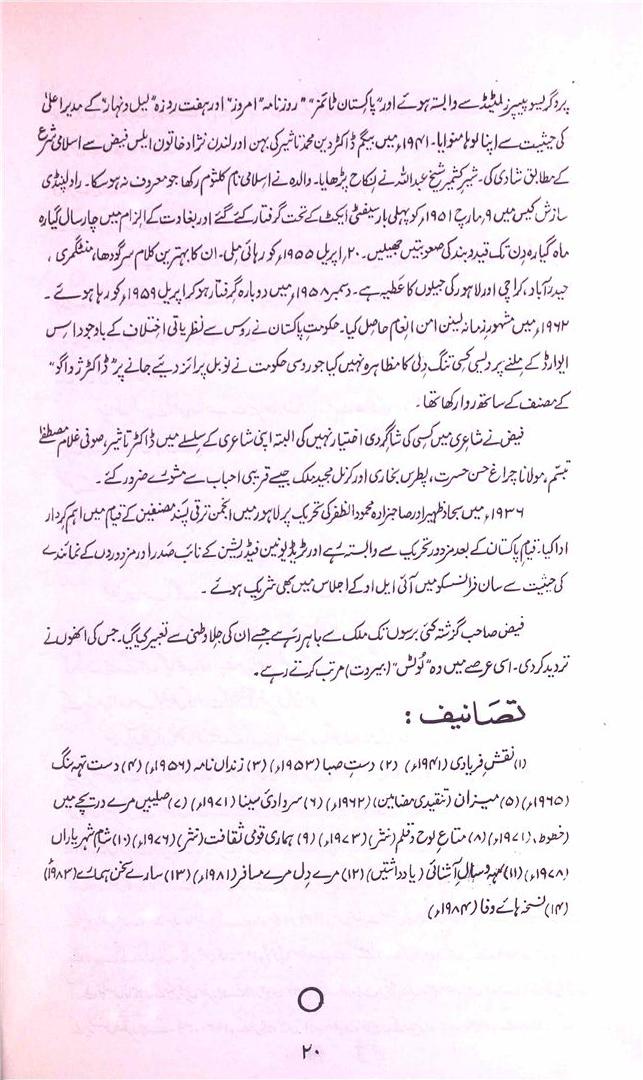 پروگریسو پیپرز لمیٹڈ سے وابستہ ہوئے اور "پاکستان ٹائمز" "روزنامہ "امروز" اور ہفت روزہ "لیل و نہار" کے مدیر اعلیٰ
کی حیثیت سے اپنا لوہا منوایا۔ ۱۹۴۱ء میں بیگم ڈاکٹر دین محمد تاثیر کی بہن اور لندن نژاد خاتون ایلس فیض سے اسلامی شرع
کے مطابق شادی کی۔ شیر کشمیر شیخ عبداللہ نے نکاح پڑھایا۔ والدہ نے اسلامی نام کلثوم رکھا جو معروف نہ ہوسکا۔ راولپنڈی
سازش کیس میں ۹ مارچ ۱۹۵۱ء کو پہلی بار سیفٹی ایکٹ کے تحت گرفتار کئے گئے اور بغاوت کے الزام میں چار سال گیارہ
ماہ گیارہ دن تک قید و بند کی صعوبتیں جھیلیں۔ ۲۰ اپریل ۱۹۵۵ء کو رہائی ملی۔ ان کا بہترین کلام سرگودھا، منٹگمری،
حیدرآباد، کراچی اور لاہور کی جیلوں کا عطیہ ہے۔ دسمبر ۱۹۵۸ء میں دوبارہ گرفتار ہو کر اپریل ۱۹۵۹ء کو رہا ہوئے۔
۱۹۶۲ء میں مشہور زمانہ لینن امن انعام حاصل کیا۔ حکومت پاکستان نے روس سے نظریاتی اختلاف کے باوجود اس
ایوارڈ کے ملنے پر ویسی کسی تنگ دلی کا مظاہرہ نہیں کیا جو روسی حکومت نے نوبل پرائز دیئے جانے پر "ڈاکٹر ژواگو"
کے مصنف کے ساتھ روا رکھا تھا۔
فیض نے شاعری میں کسی کی شاگردی اختیار نہیں کی البتہ اپنی شاعری کے سلسلے میں ڈاکٹر تاثیر، صوفی غلام مصطفےٰ
تبسم، مولانا چراغ حسن حسرت، پطرس بخاری اور کرنل مجید ملک جیسے قریبی احباب سے مشورے ضرور کئے۔
۱۹۳۶ء میں سجاد ظہیر اور صاحبزادہ محمود الظفر کی تحریک پر لاہور میں انجمن ترقی پسند مصنفین کے قیام میں اہم کردار
ادا کیا۔ قیام پاکستان کے بعد مزدور تحریک سے وابستہ رہے اور ٹریڈ یونین فیڈریشن کے نائب صدر اور مزدوروں کے نمائندے
کی حیثیت سے سان فرانسسکو میں آئی ایل او کے اجلاس میں بھی شریک ہوئے۔
فیض صاحب گزشتہ کئی برسوں تک ملک سے باہر رہے جسے ان کی جلاوطنی سے تعبیر کیا گیا۔ جس کی انھوں نے
تردید کردی۔ اسی عرصے میں وہ "لوٹس" (بیروت) مرتب کرتے رہے۔
تصانیف :
(۱) نقش فریادی (۱۹۴۱ء) (۲) دست صبا (۱۹۵۳ء) (۳) زنداں نامہ (۱۹۵۶ء) (۴) دست تہہ سنگ
(۱۹۶۵ء) (۵) میزان (تنقیدی مضامین) (۱۹۶۲ء) (۶) سر وادئ سینا (۱۹۷۱ء) (۷) صلیبیں مرے دریچے میں
(خطوط، ۱۹۷۱ء) (۸) متاع لوح و قلم (نثر) (۱۹۷۳ء) (۹) ہماری قومی ثقافت (نثر) (۱۹۷۶ء) (۱۰) شام شہریاراں
(۱۹۷۸ء) (۱۱) مہ و سال آشنائی (یادداشتیں) (۱۲) مرے دل مرے مسافر (۱۹۸۱ء) (۱۳) سارے سخن ہمارے (۱۹۸۳ء)
(۱۴) نسخہ ہائے وفا (۱۹۸۴ء)
۲۰